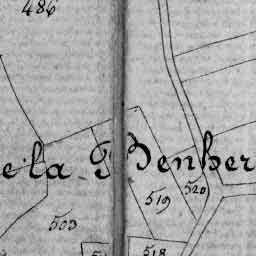 486
e la Benher
520
519
503
518